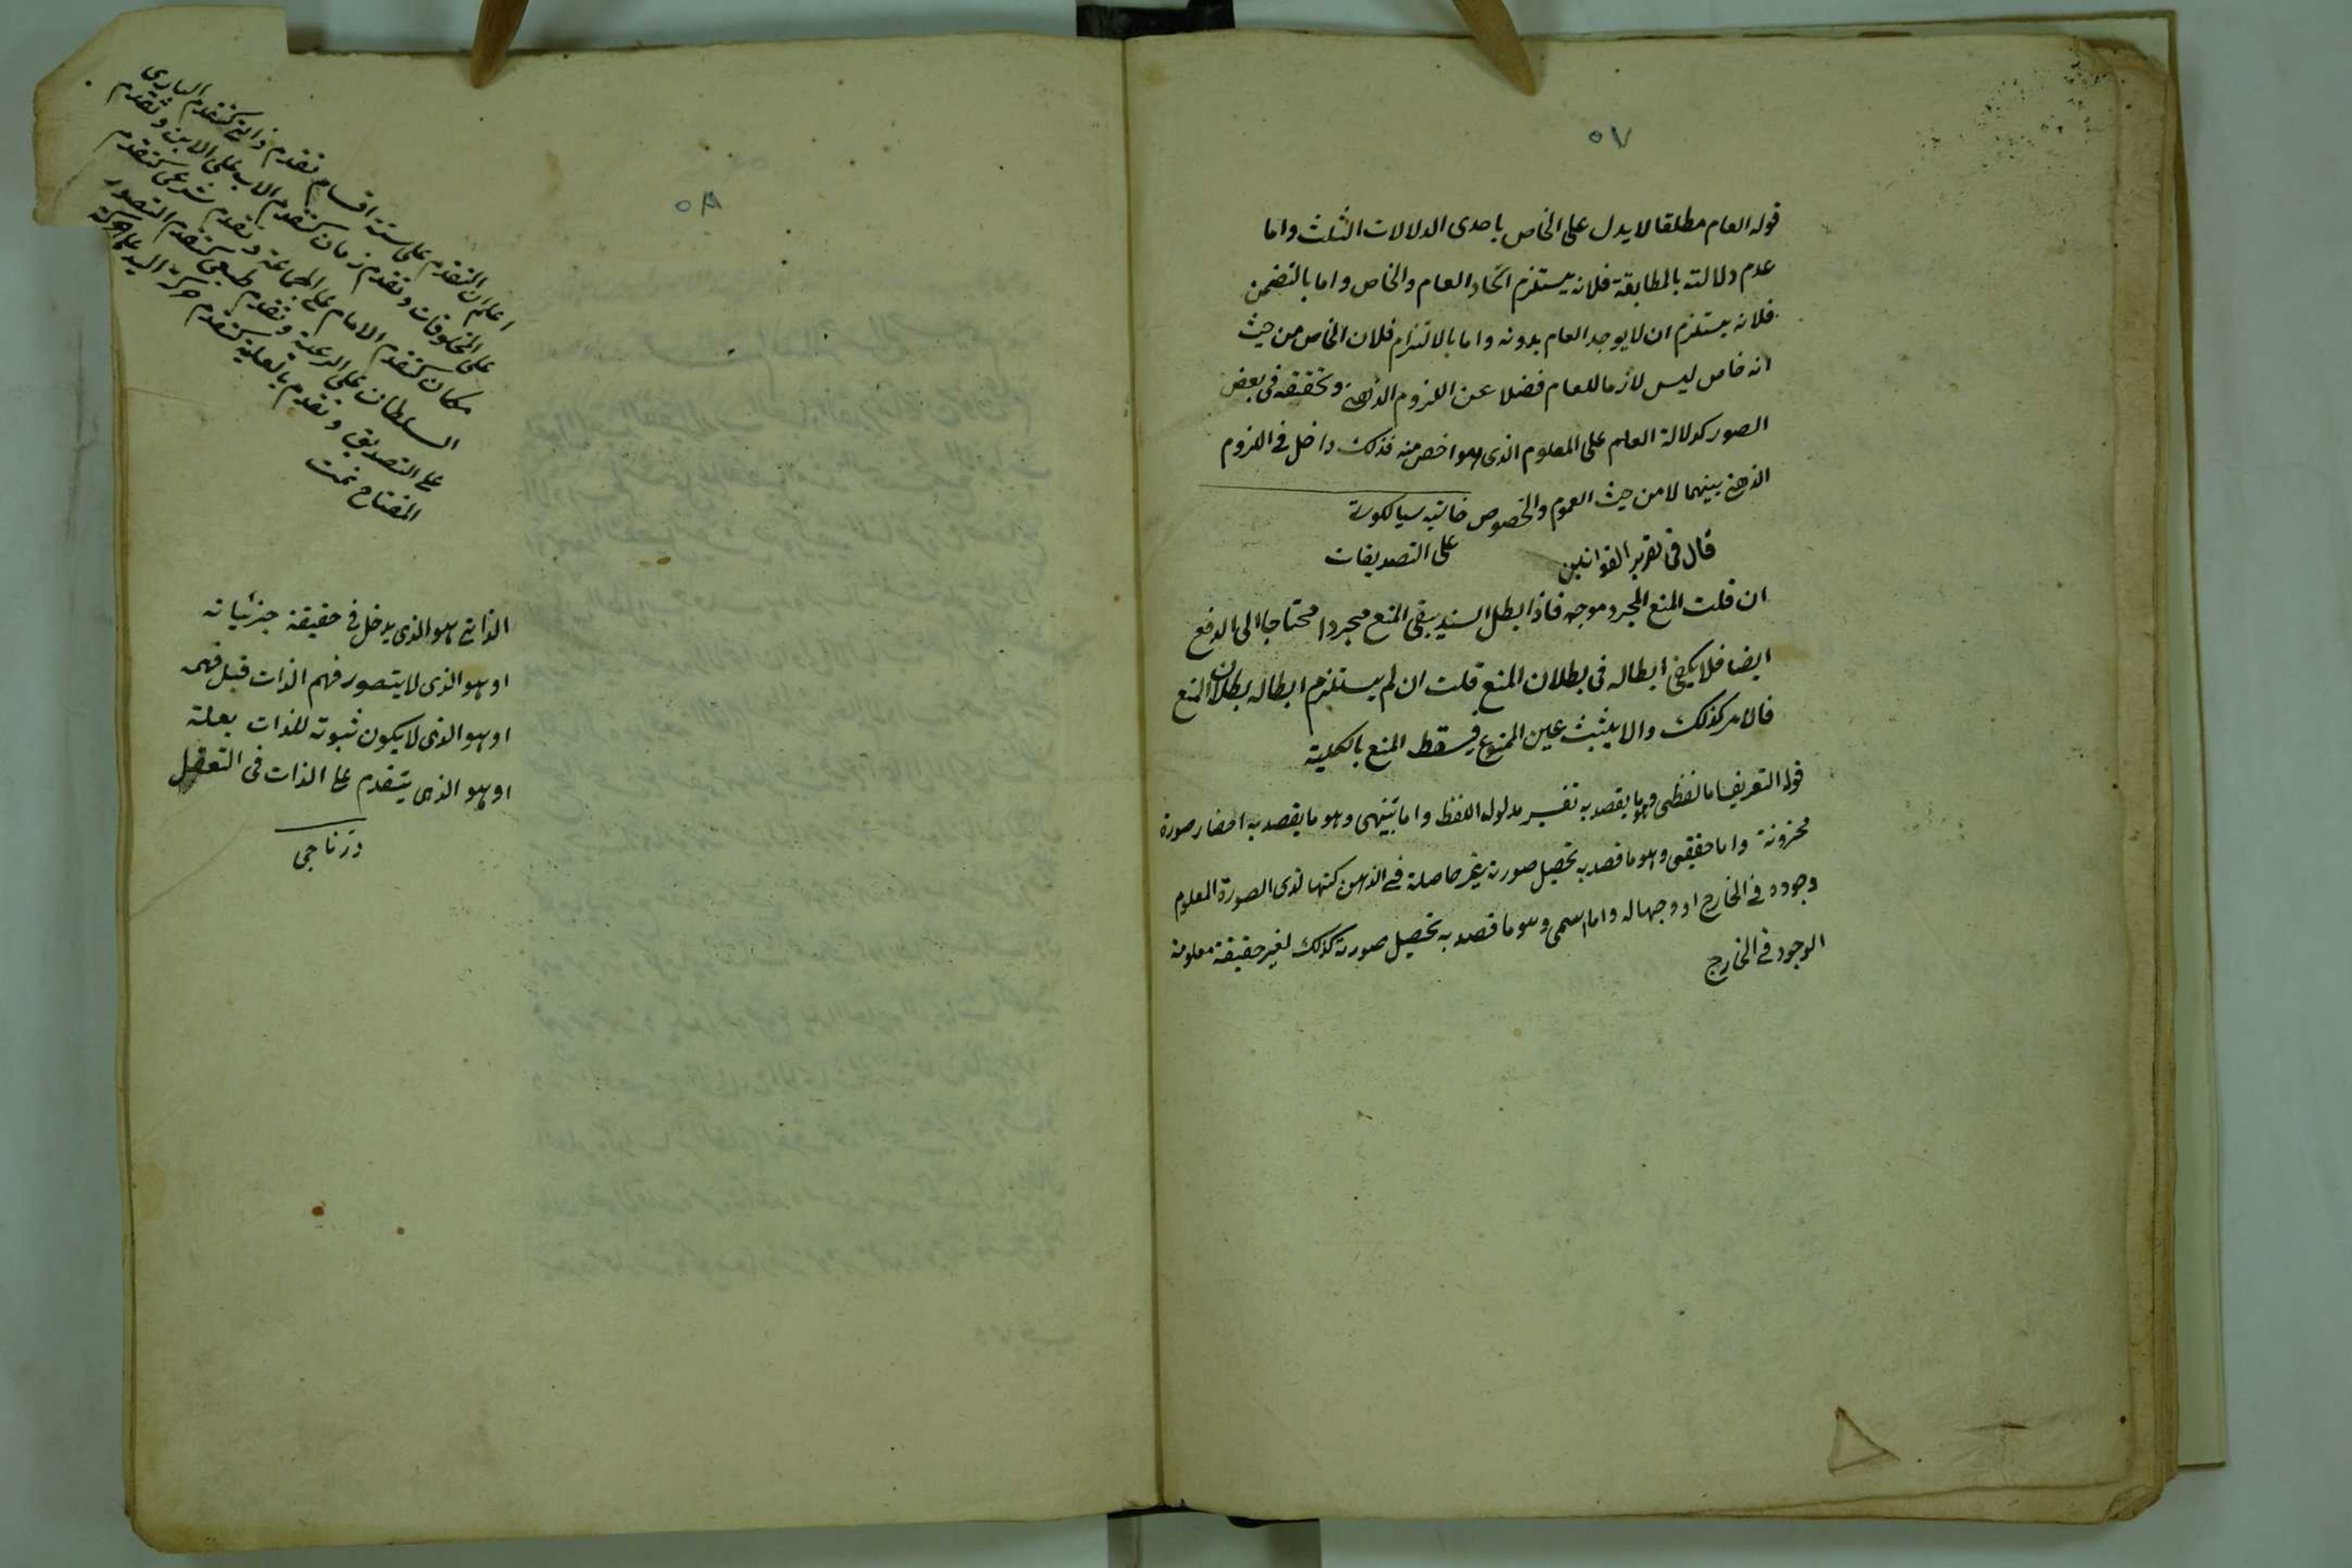 ٥٧
قوله العام مطلقا لا يدل على الخاص باحدى الدلالات الثلث واما
عدم دلالته بالمطابقة فلانه يستلزم اتحاد العام والخاص واما بالتضمن
فلانه يستلزم ان لا يوجد العام بدونه واما بالالتزام فلان الخاص من حيث
انه خاص ليس لازما للعام فضلا عن اللزوم الذهنى وتحققه فى بعض
الصور كدلالة العلم على المعلوم الذى هو اخص منه فذلك داخل فى اللزوم
الذهنى بينهما لا من حيث العموم والخصوص حاشيه سيالكوتى
على التصديقات
قال فى تقرير القوانين
ان قلت المنع المجرد موجه فاذا ابطل السند يبقى المنع مجردا محتاجا الى الدفع
ايضا فلا يكفى ابطاله فى بطلان المنع قلت ان لم يستلزم ابطاله بطلان المنع
فالامر كذلك والا يثبت عين الممنوع فيسقط المنع بالكلية
قوله التعريف اما لفظى وهو ما يقصد به تفسير مدلول اللفظ واما تنبيهى وهو ما يقصد به احضار صورة
مخزونة واما حقيقى وهو ما قصد به تحصيل صورة غير حاصلة فى الذهن كنها لذى الصورة المعلوم
وجوده فى الخارج او وجها له واما اسمى وهو ما قصد به تحصيل صورة كذلك لغير حقيقة معلومة
الوجود فى الخارج
٥٨
اعلم ان التقدم على ستة اقسام تقدم ذاتى كتقدم البارى
على المخلوقات وتقدم زمان كتقدم الاب على الابن وتقدم
مكان كتقدم الامام على الجماعة وتقدم شرعى كتقدم
السلطان على الرعية وتقدم طبعى كتقدم التصور
على التصديق وتقدم بالعلية كتقدم حركة اليد على حركة
المفتاح تمت
الذاتى هو الذى يدخل فى حقيقة جزئياته
او هو الذى لا يتصور فهم الذات قبل فهمه
او هو الذى لا يكون ثبوته للذات بعلة
او هو الذى يتقدم على الذات فى التعقل
درناجى